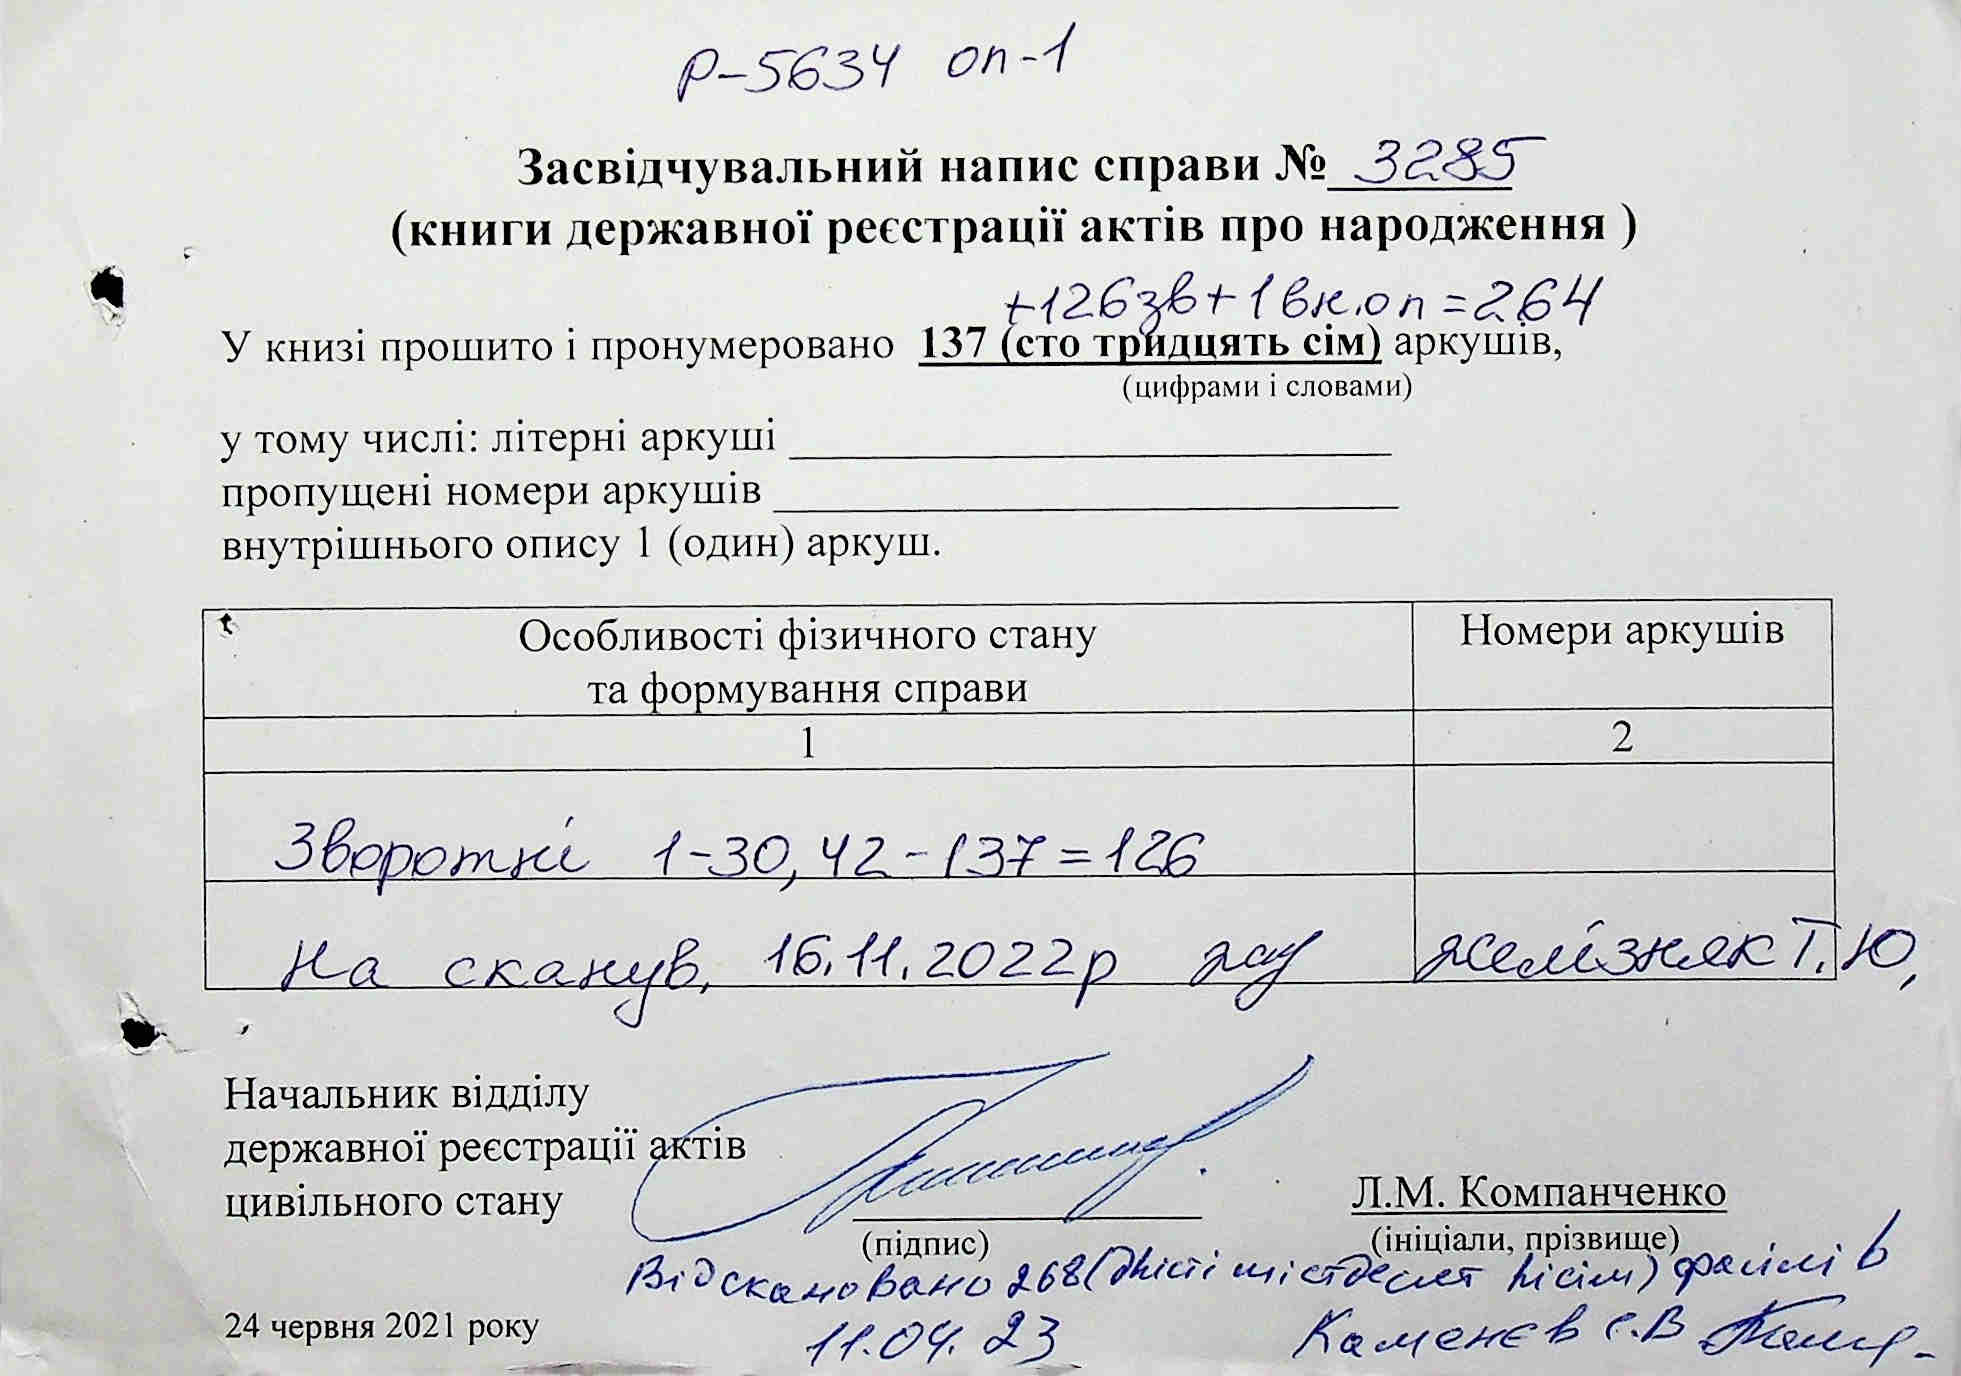 Р-5634 оп-1
Засвідчувальний напис справи № 3285
(книги державної реєстрації актів про народження )
+126зв+1вн.оп=264
У книзі прошито і пронумеровано 137 (сто тридцять сім) аркушів,
(цифрами і словами)
у тому числі: літерні аркуші
пропущені номери аркушів
внутрішнього опису 1 (один) аркуш.
Особливості фізичного стану Номери аркушів
та формування справи
1 2
Зворотні 1-30, 42-137=126
На сканув. 16.11.2022р Желізняк Т.Ю.
Начальник відділу
державної реєстрації актів
цивільного стану Л.М. Компанченко
(підпис) (ініціали, прізвище)
Відскановано 268 (двісті шістдесят вісім) файлів
24 червня 2021 року 11.04.23 Каменєв С.В